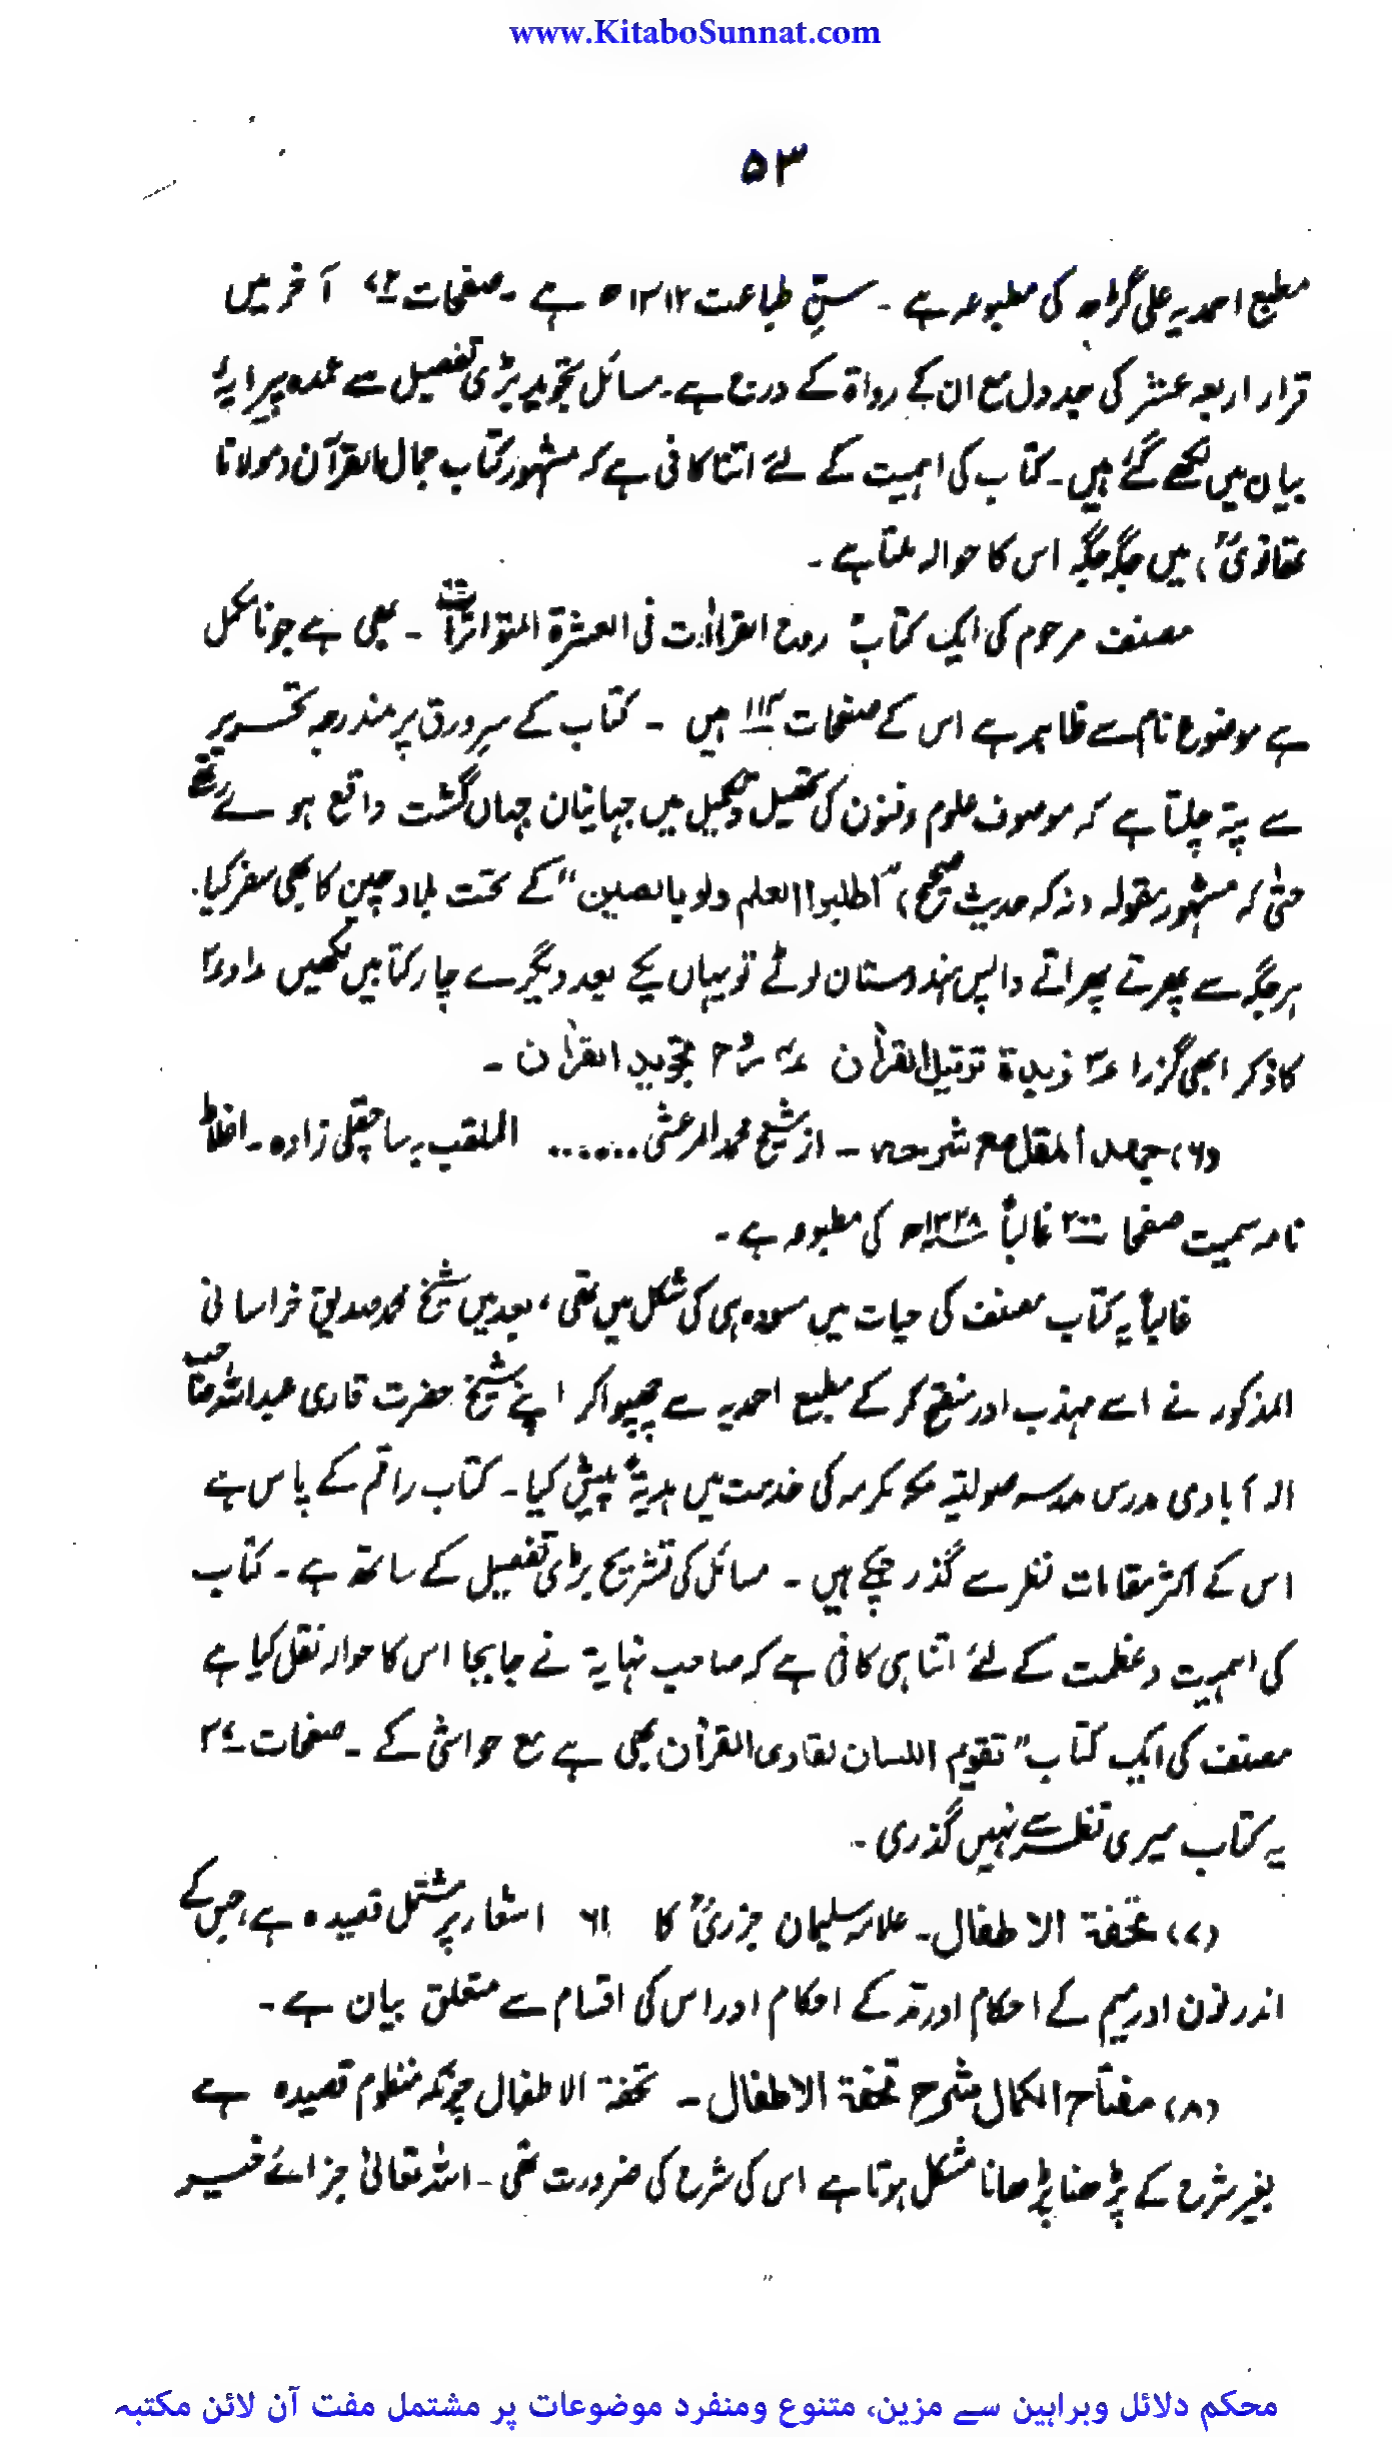 www.KitaboSunnat.com
۵۳
مطبع احمدیہ علی گڑھ کی مطبوعہ ہے ۔ سنِ طباعت ۱۳۱۲ھ ہے ۔ صفحات آخر میں
قرار اربعہ عشر کی جدول مع ان کے رواۃ کے درج ہے ۔ مسائل تجوید بڑی تفصیل سے عمدہ پیرایۂ
بیان میں لکھے گئے ہیں ۔ کتاب کی اہمیت کے لئے اتنا کافی ہے کہ مشہور کتاب جمال القرآن (مولانا
تھانویؒ) میں جگہ جگہ اس کا حوالہ ملتا ہے ۔
مصنف مرحوم کی ایک کتاب" روح القراءت فی العشرۃ المتواترات ۔ بھی ہے جو نامکمل
ہے موضوع نام سے ظاہر ہے اس کے صفحات ۱۱۲ ہیں ۔ کتاب کے سرِ ورق پر مندرجہ تحریر
سے پتہ چلتا ہے کہ موصوف علوم وفنون کی تحصیل وتکمیل میں جہانیان جہاں گشت واقع ہوئے تھے
حتیٰ کہ مشہور مقولہ (نہ کہ حدیث صحیح) "اطلبوا العلم ولو بالصین" کے تحت بلاد چین کا بھی سفر کیا.
ہر جگہ سے پھرتے پھراتے واپس ہندوستان لوٹے تو یہاں یکے بعد دیگرے چار کتابیں لکھیں ۱؎ و ۲؎
کا ذکر ابھی گزرا ۳؎ زبدۃ ترتیل القرآن ۴؎ روح تجوید القرآن ۔
(۶) جہد المقل مع شرحہ ۔ از شیخ محمد المرعشی ...... الملقب بہ ساچقلی زادہ ۔ اغلاط
نامہ سمیت صفحات ۲۰۰ غالباً ۱۳۲۸ھ کی مطبوعہ ہے ۔
غالباً یہ کتاب مصنف کی حیات میں مسودہ ہی کی شکل میں تھی، بعد میں شیخ محمد صدیق خراسانی
المذکور نے اسے مہذب اور منقح کر کے مطبع احمدیہ سے چھپوا کر اپنے شیخ حضرت قاری عبداللہ صاحب
الہ آبادی مدرس مدرسہ صولتیہ مکہ مکرمہ کی خدمت میں ہدیۃً پیش کیا ۔ کتاب راقم کے پاس ہے
اس کے اکثر مقامات نظر سے گذر چکے ہیں ۔ مسائل کی تشریح بڑی تفصیل کے ساتھ ہے ۔ کتاب
کی اہمیت وعظمت کے لئے اتنا ہی کافی ہے کہ صاحب نہایۃ نے جابجا اس کا حوالہ نقل کیا ہے
مصنف کی ایک کتاب " تقویم اللسان لقاری القرآن بھی ہے مع حواشی کے ۔ صفحات ۲۷
یہ کتاب میری نظر سے نہیں گذری ۔
(۷) تحفۃ الاطفال ۔ علامہ سلیمان جزریؒ کا ۶۱ اشعار پر مشتمل قصیدہ ہے، جس کے
اندر نون اور میم کے احکام اور مد کے احکام اور اس کی اقسام سے متعلق بیان ہے ۔
(۸) مفتاح الکمال شرح تحفۃ الاطفال ۔ تحفۃ الاطفال چونکہ منظوم قصیدہ ہے
بغیر شرح کے پڑھنا پڑھانا مشکل ہوتا ہے اس کی شرح کی ضرورت تھی ۔ اللہ تعالیٰ جزائے خیر
محکم دلائل وبراہین سے مزین، متنوع ومنفرد موضوعات پر مشتمل مفت آن لائن مکتبہ